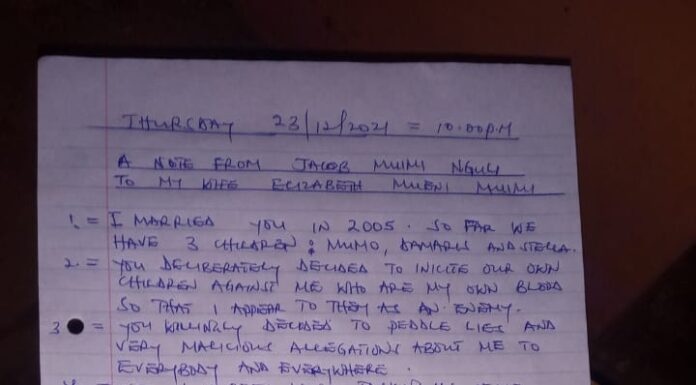 THURSDAY 23/12/2021 = 10.00P.M
A NOTE FROM JACOB MUIMI NGULI
TO MY WIFE ELIZABETH MUENI MUIMI
1. = I MARRIED YOU IN 2005. SO FAR WE
HAVE 3 CHILDREN: MUMO, DAMARIS AND STELLA.
2. = YOU DELIBERATELY DECIDED TO INICITE OUR OWN
CHILDREN AGAINST ME WHO ARE MY OWN BLOOD
SO THAT I APPEAR TO THEM AS AN ENEMY.
3 = YOU WILLINGLY DECIDED TO PEDDLE LIES AND
VERY MALICIOUS ALLEGATIONS ABOUT ME TO
EVERYBODY AND EVERYWHERE.